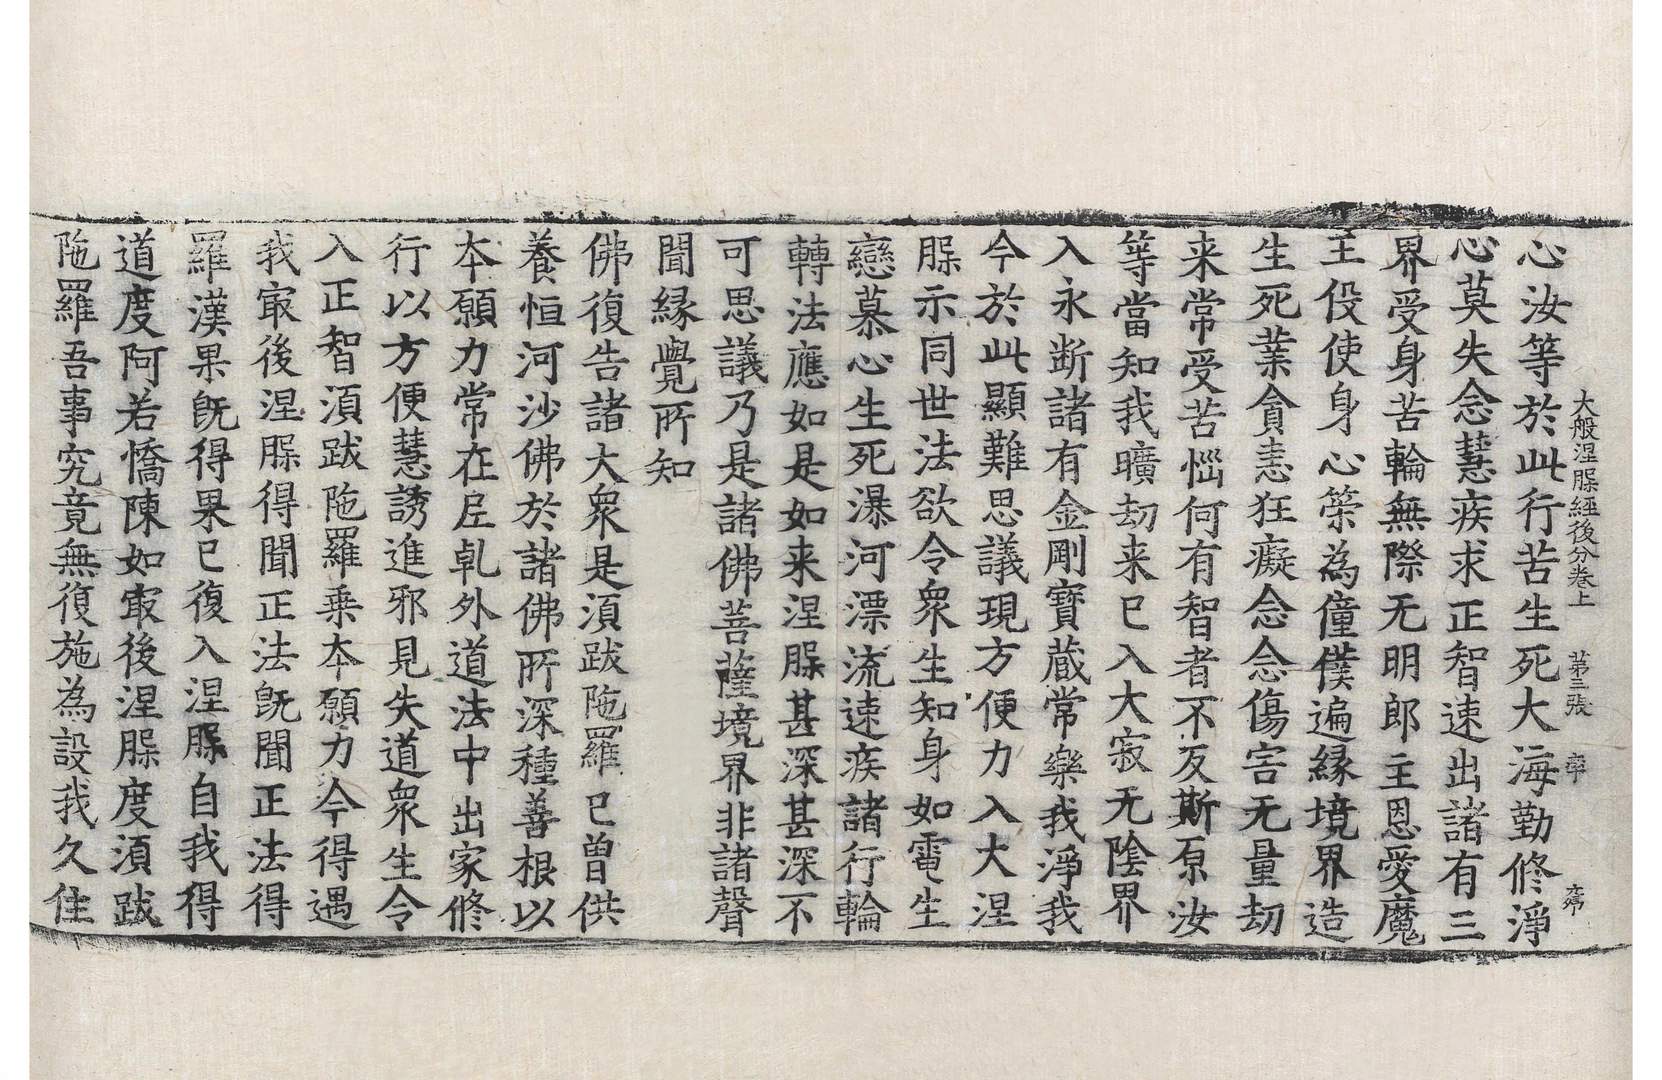 大般涅槃經後分卷上　第三張
心汝等於此行苦生死大海勤修淨
心莫失念慧疾求正智速出諸有三
界受身苦輪無際无明郎主恩愛魔
王役使身心策為僮僕遍緣境界造
生死業貪恚狂癡念念傷害无量劫
来常受苦惱何有智者不反斯原汝
等當知我曠劫来已入大寂无陰界
入永断諸有金剛寶藏常樂我淨我
今於此顯難思議現方便力入大涅
槃示同世法欲令衆生知身如電生
戀慕心生死瀑河漂流速疾諸行輪
轉法應如是如来涅槃甚深甚深不
可思議乃是諸佛菩薩境界非諸聲
聞緣覺所知
佛復告諸大衆是須跋陁羅已曾供
養恒河沙佛於諸佛所深種善根以
本願力常在尼乹外道法中出家修
行以方便慧誘進邪見失道衆生令
入正智須跋陁羅乗本願力今得遇
我㝡後涅槃得聞正法旣聞正法得
羅漢果旣得果已復入涅槃自我得
道度阿若憍陳如㝡後涅槃度須跋
陁羅吾事究竟無復施為設我久住